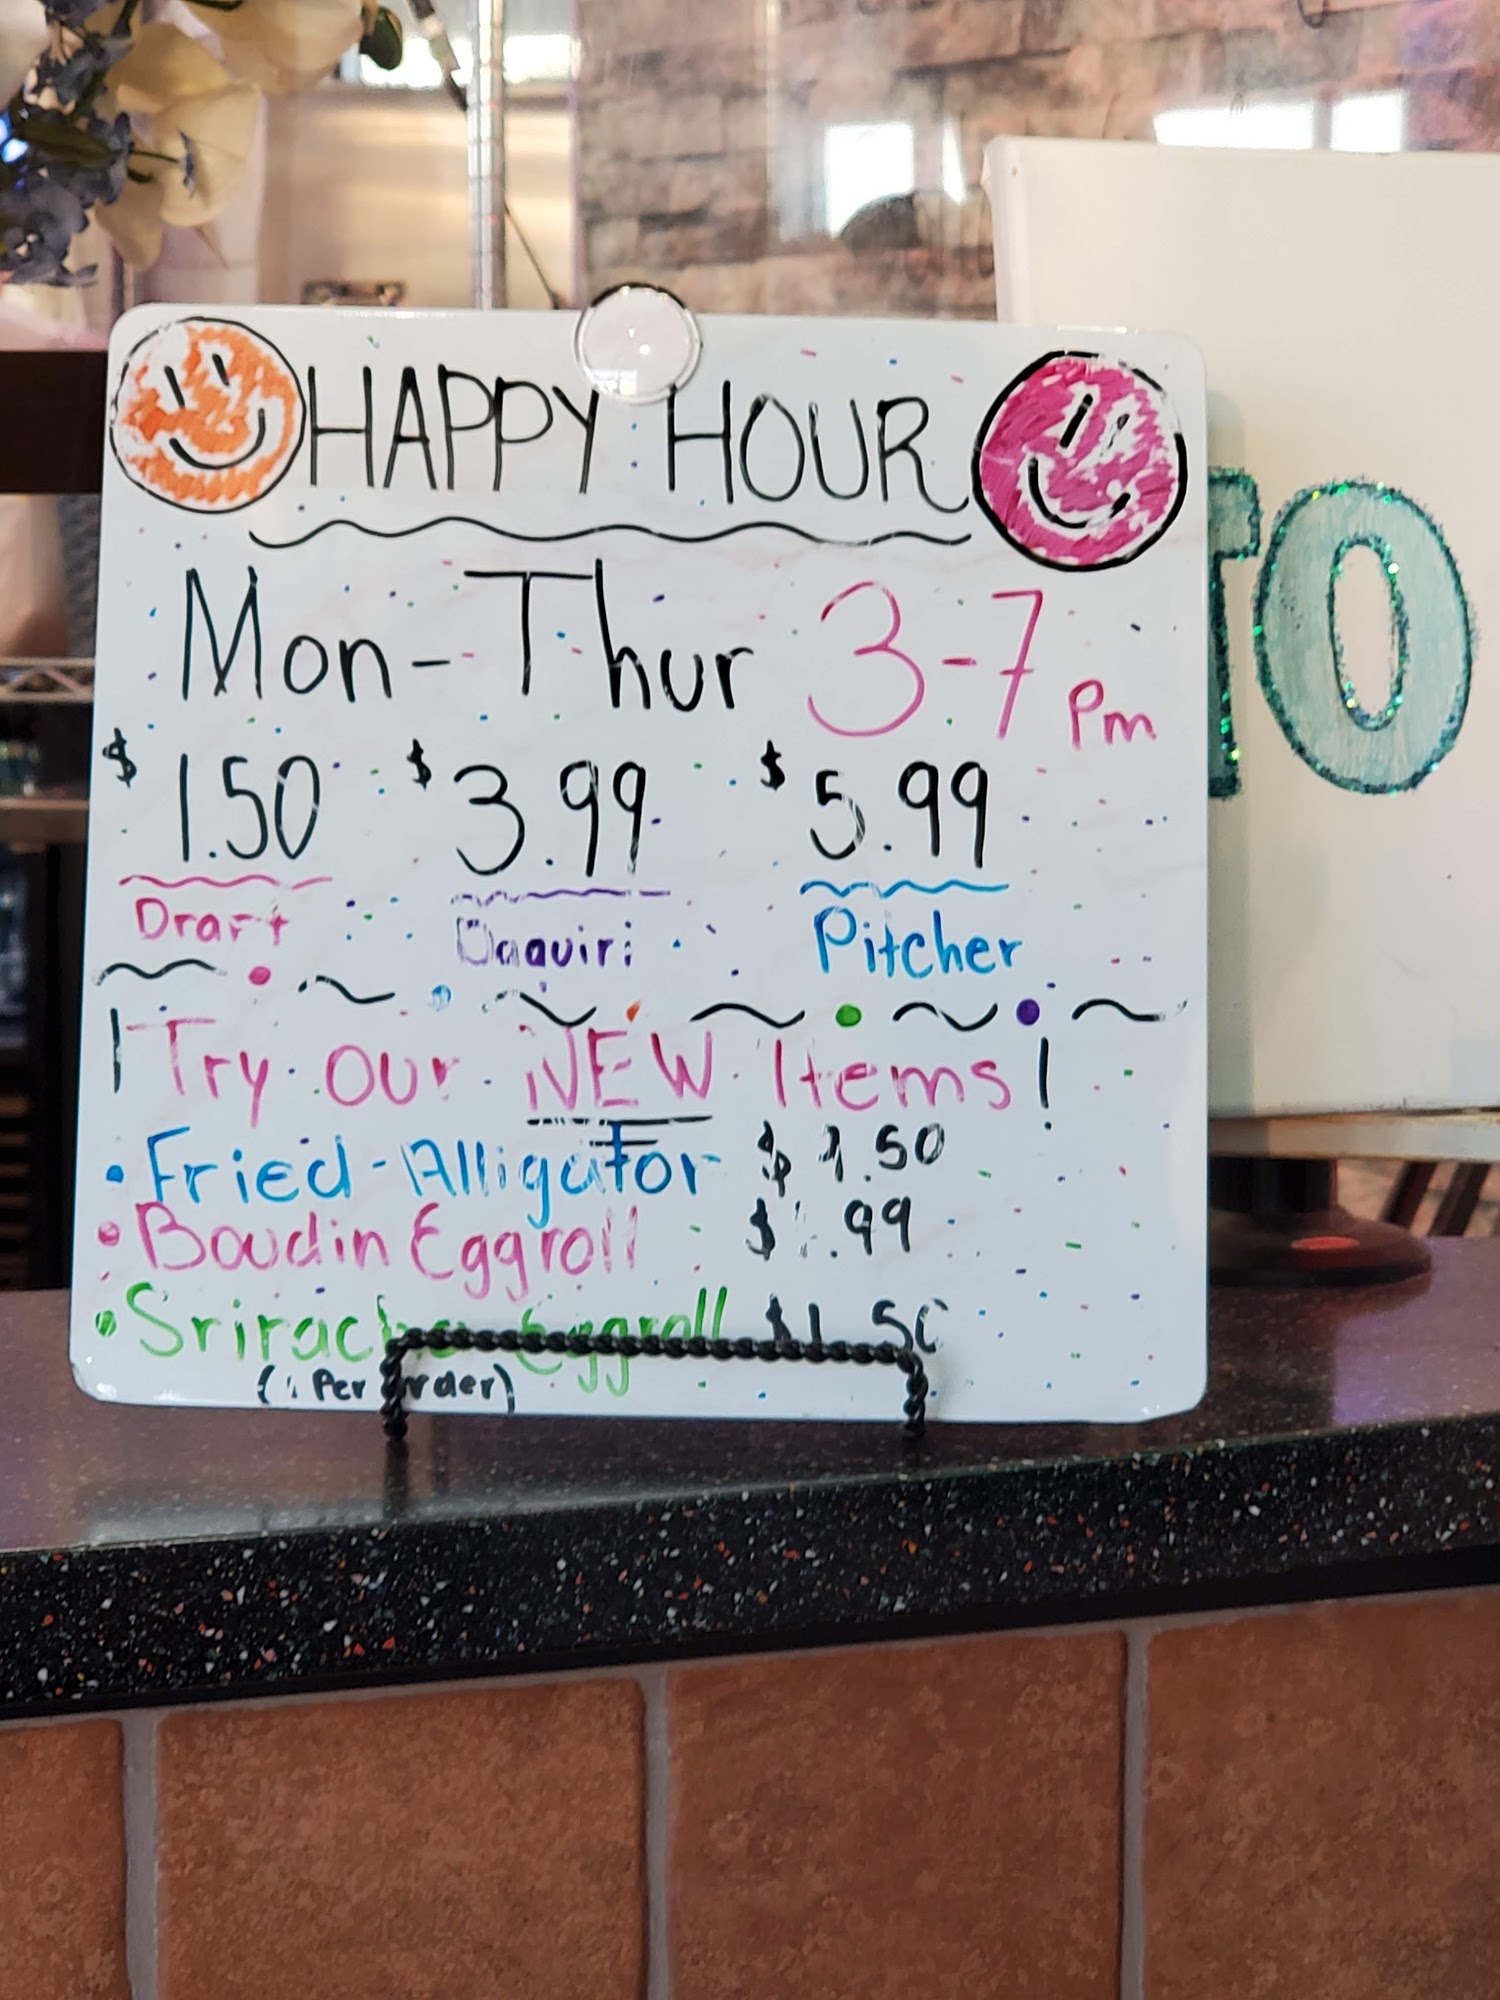 HAPPY HOUR
Mon-Thur 3-7 pm
$1.50 $3.99 $5.99
Draft Daquiri Pitcher
! Try our NEW Items!
• Fried-Alligator
• Boudin Eggroll
• Sriracha Eggroll $1.50
Per order)
TO